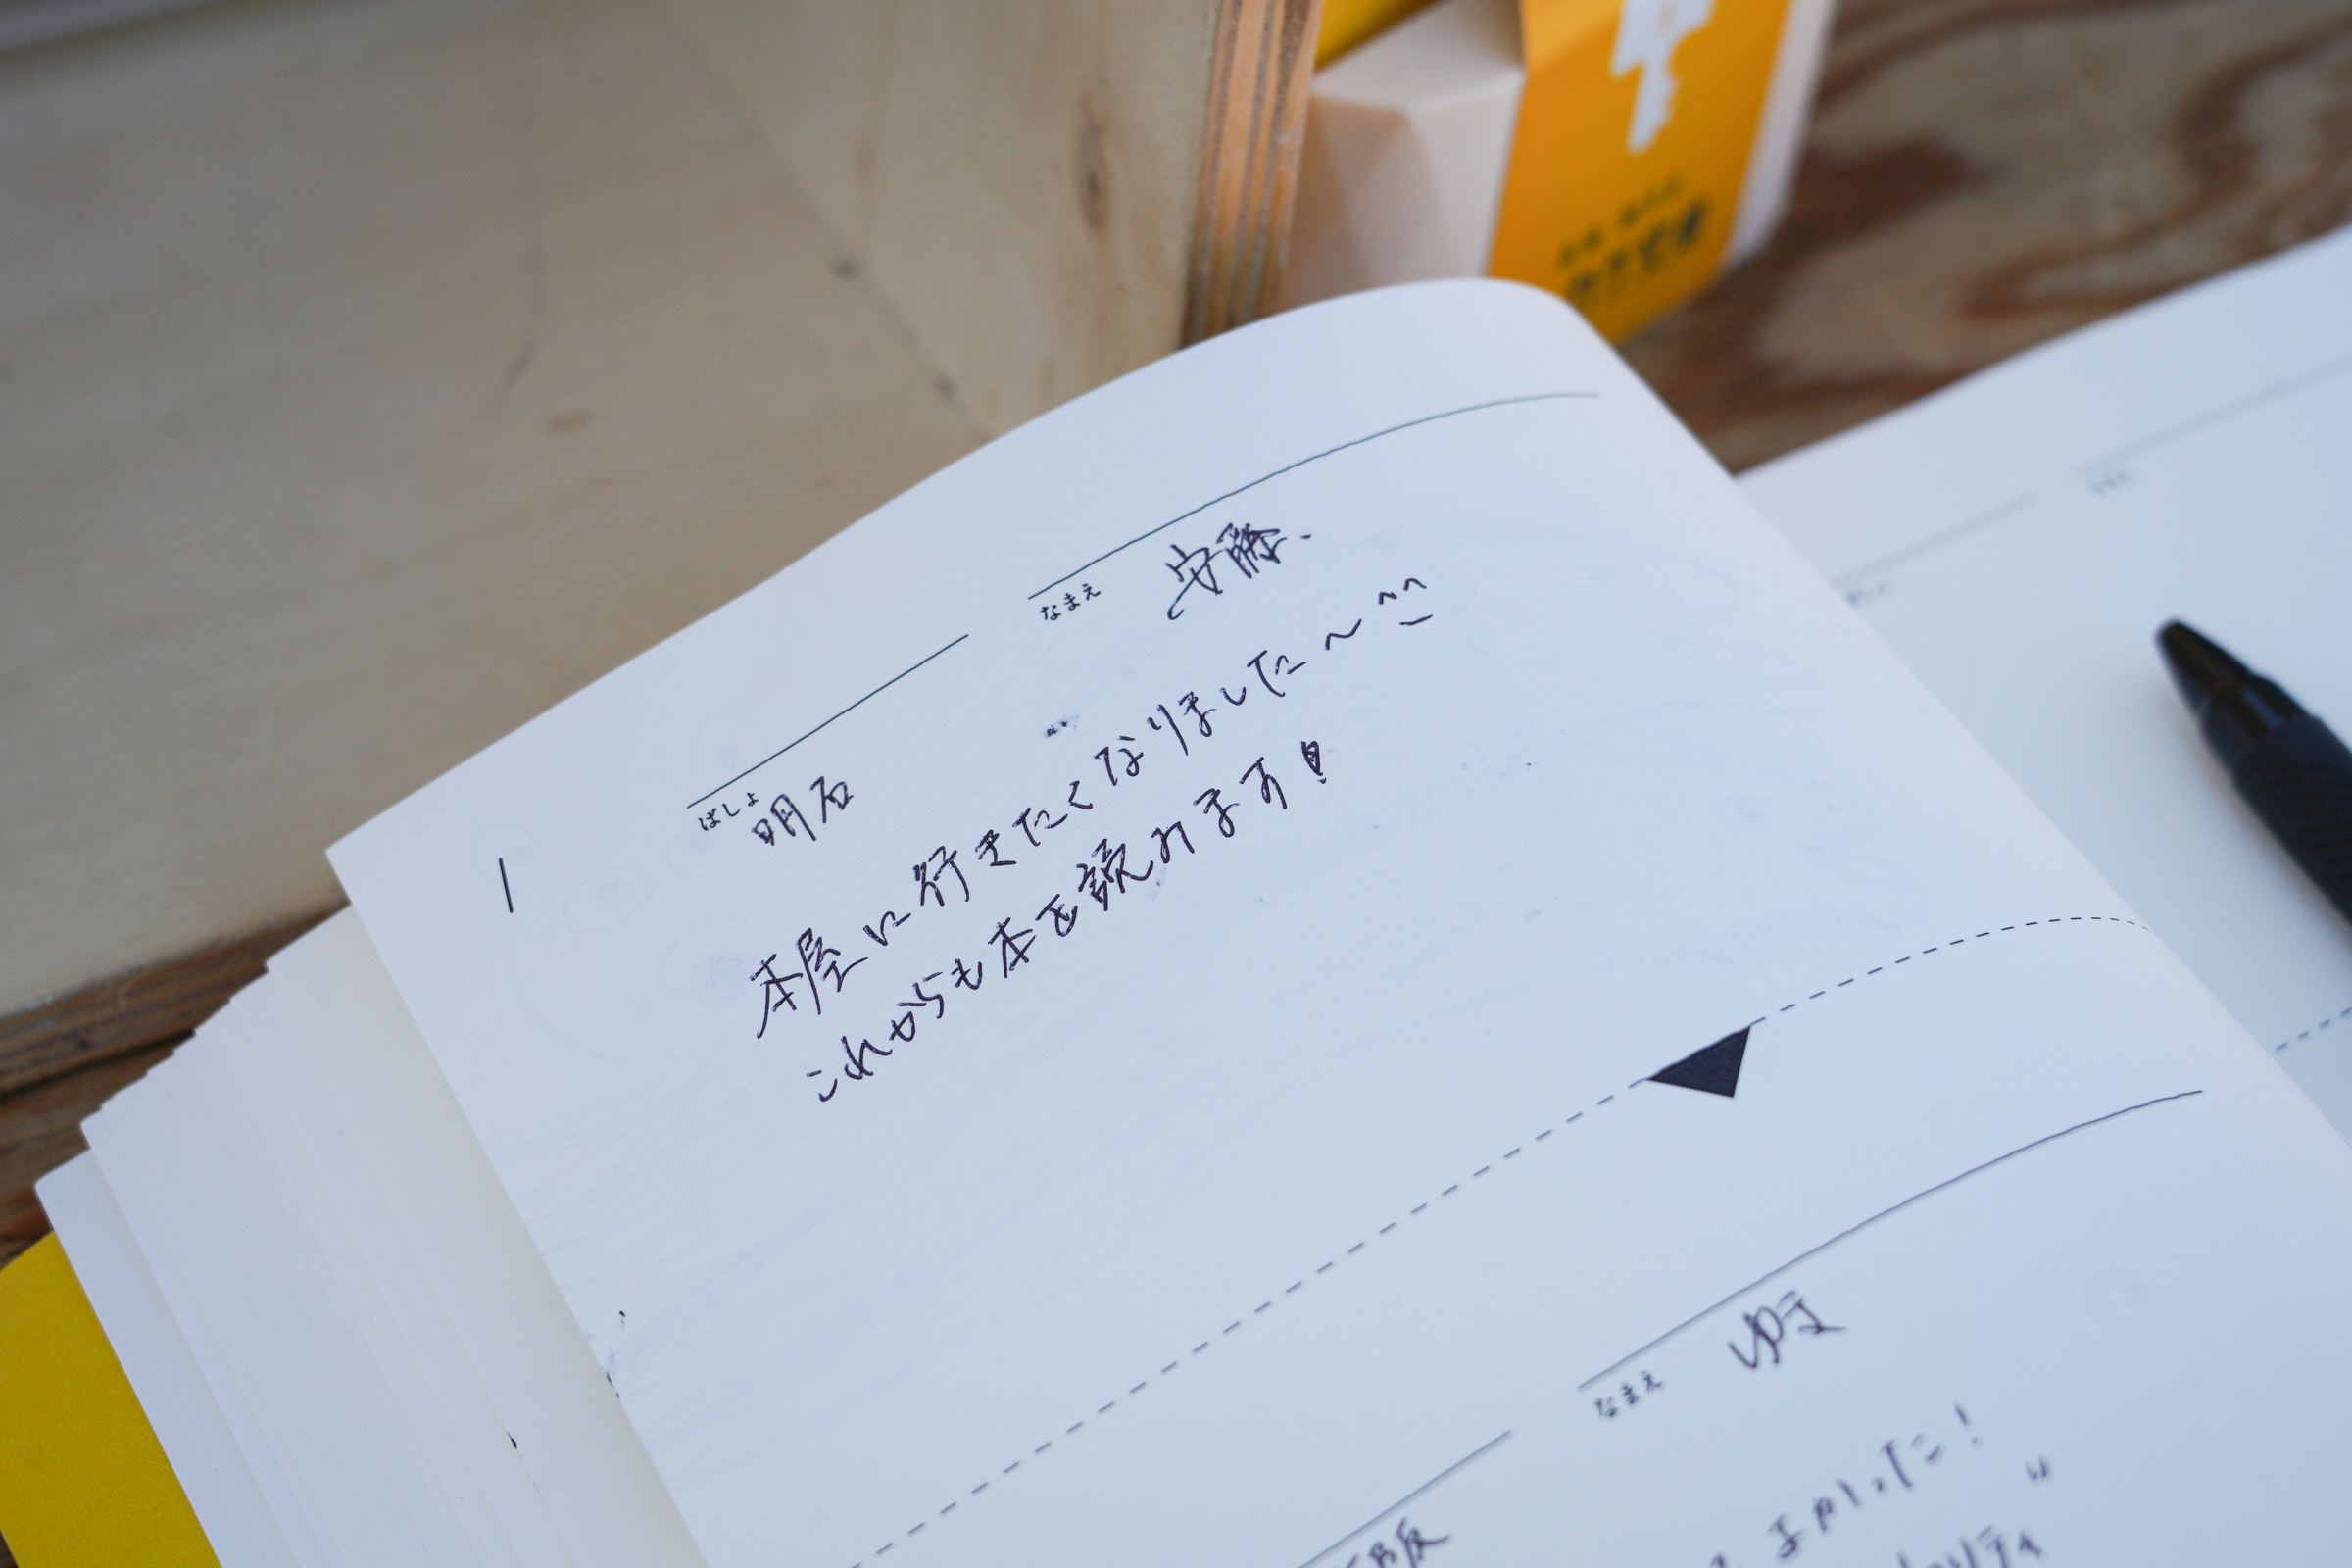 なまえ 安藤.
ばしょ 明石
本屋に行きたくなりました〜^^
これからも本を読みます!
なまえ ゆま
よかった!